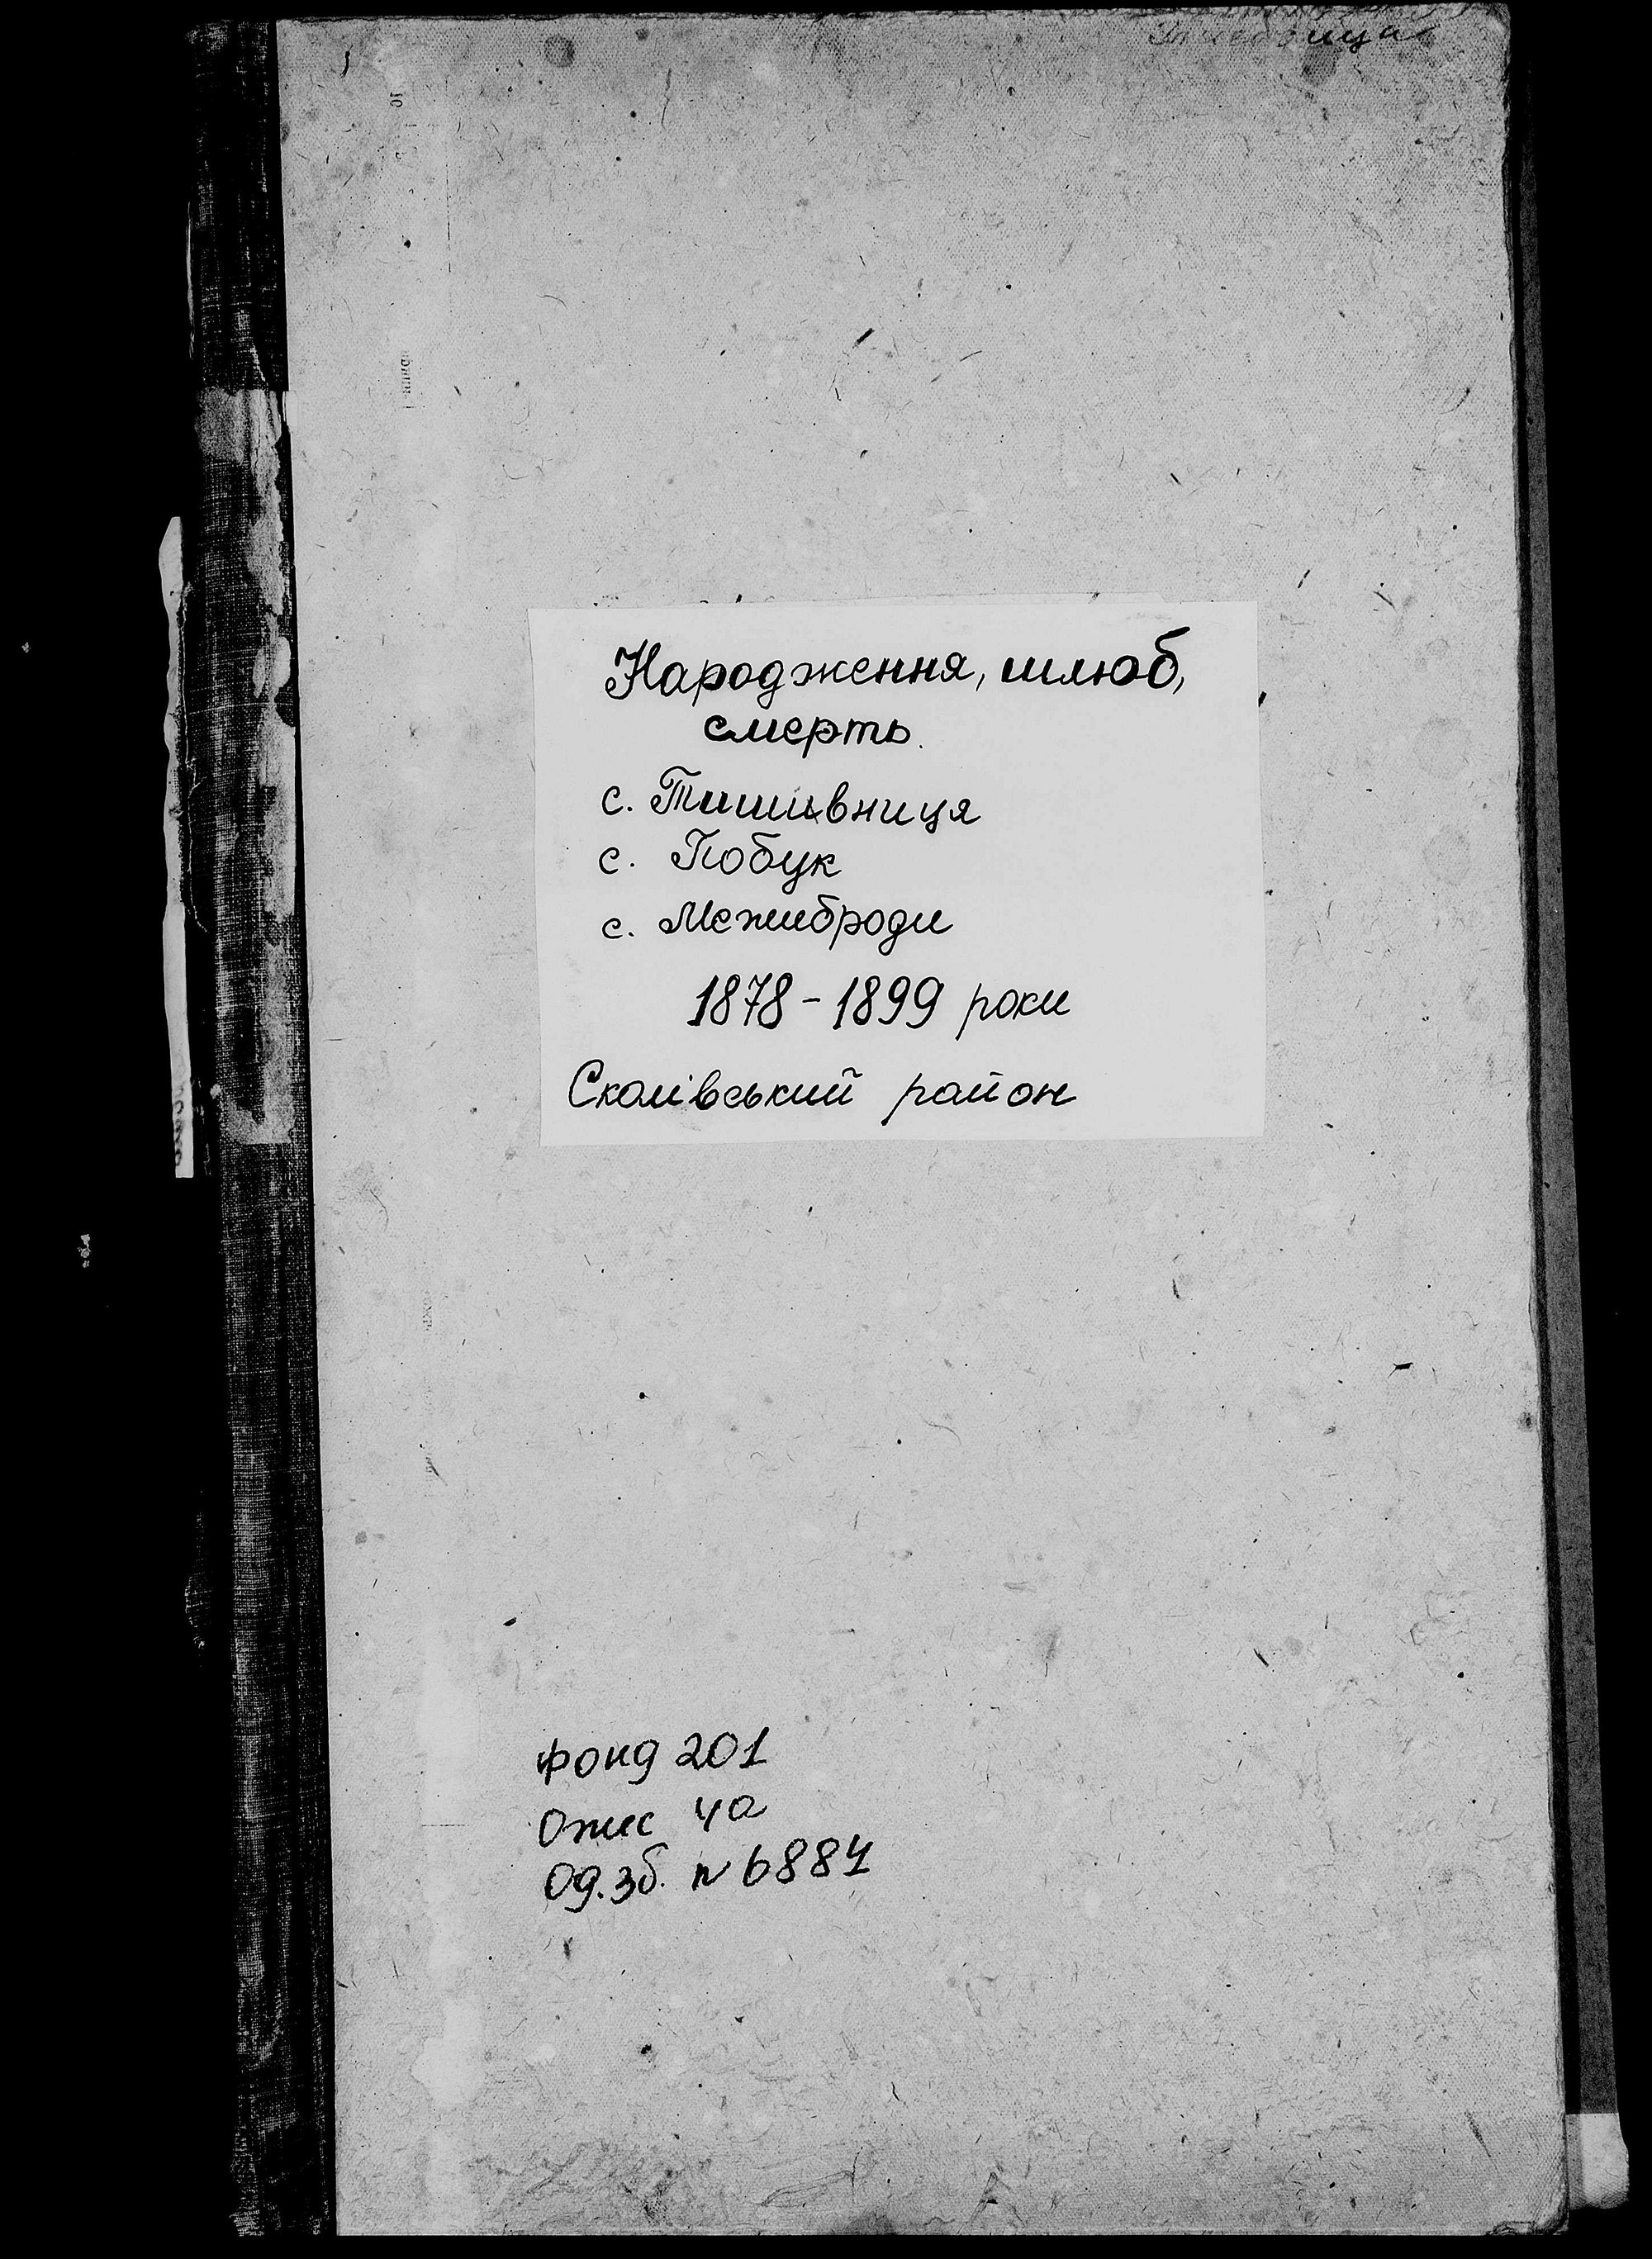 Народження, шлюб,
смерть.
с. Тишивниця
с. Побук
с. Межиброди
1878-1899 роки
Сколівський район
Фонд 201
Опис 4а
Од.зб. № 6884